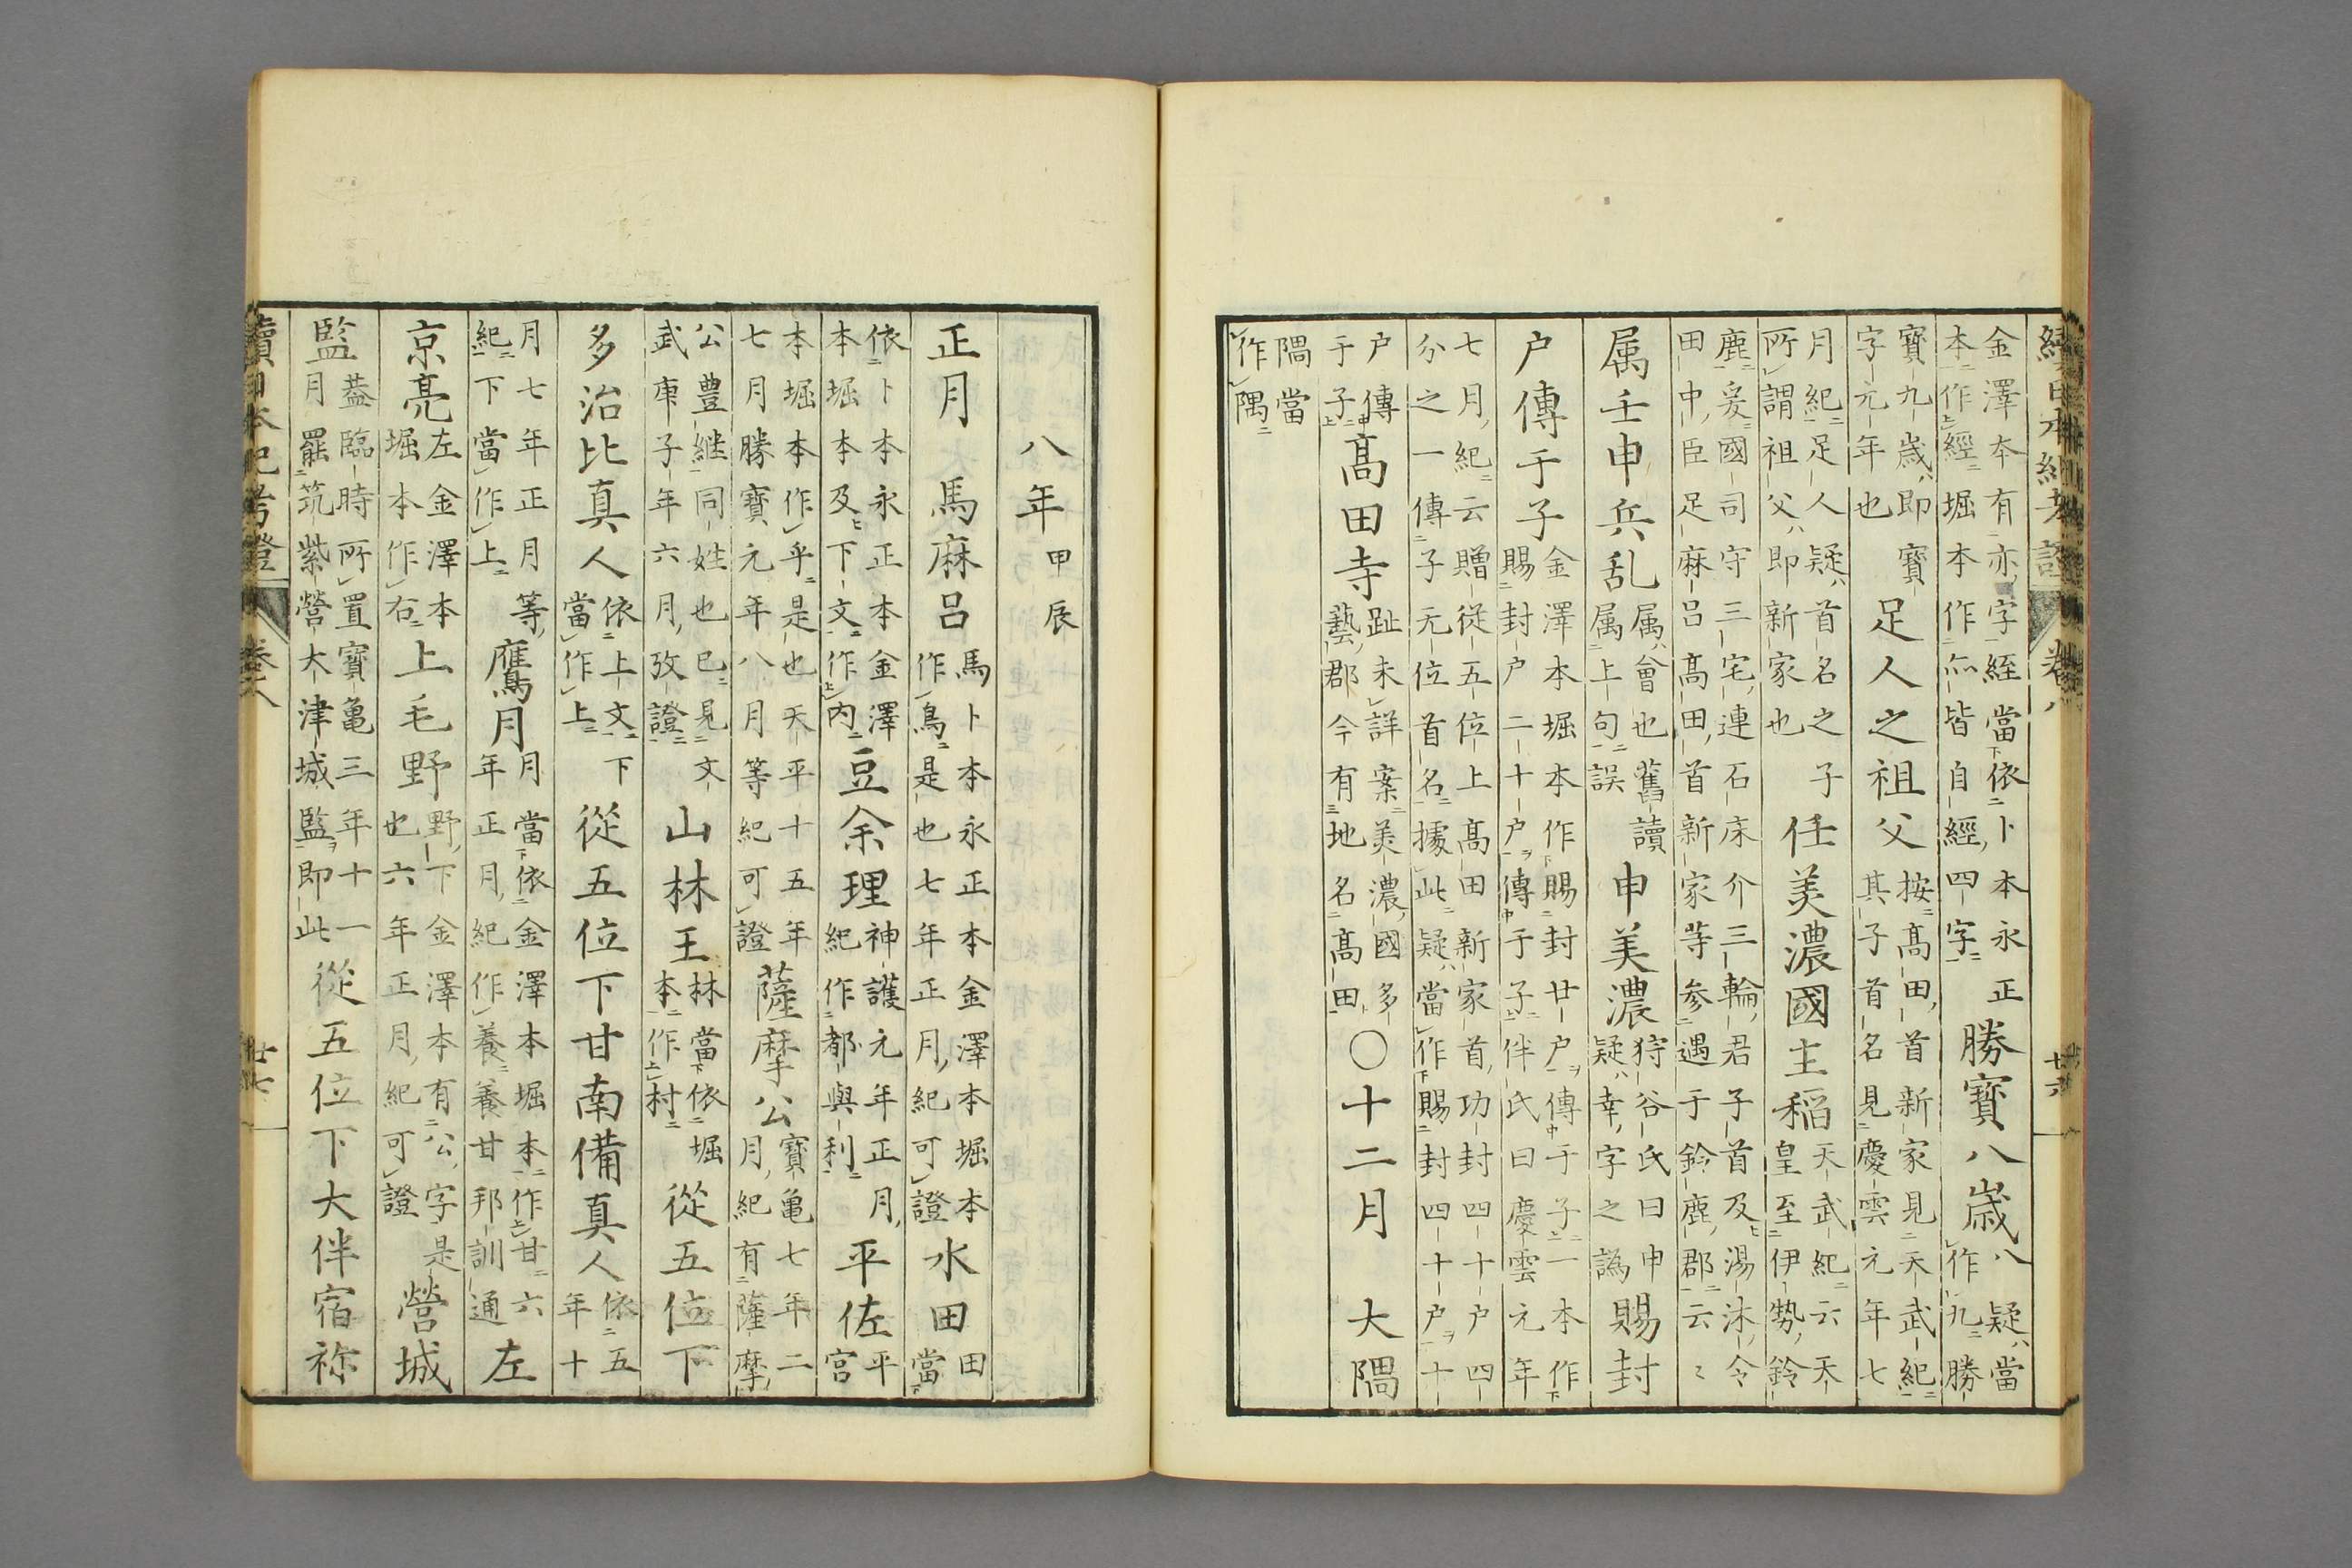 續日本紀考證 卷八 廿六
金澤本有亦字經當依卜本永正
本作經堀本作尒皆自經四字
勝寶八歳
八疑當
作九勝
寶九歳即寶
字元年也
足人之祖父
按高田首新家見天武紀
其子首名見慶雲元年七
月紀足人疑首名之子
所謂祖父即新家也
任美濃國主稲
天武紀云天
皇至伊勢鈴
鹿爰國司守三宅連石床介三輪君子首及湯沐令
田中臣足麻呂高田首新家等参遇于鈴鹿郡云〻
属壬申兵乱
属會也舊讀
属上句誤
申美濃
狩谷氏曰申
疑幸字之譌
賜封
户傳于子
金澤本堀本作賜封廿户傳于子一本作
賜封户二十户傳于子伴氏曰慶雲元年
七月紀云贈從五位上高田新家首功封四十户四
分之一傳子无位首名據此疑當作賜封四十户十
户傳
于子
高田寺
趾未詳案美濃國多
藝郡今有地名高田
〇十二月 大隅
隅當
作隅
八年甲辰
正月 馬麻呂
馬卜本永正本金澤本堀本
作鳥是也七年正月紀可證
水田
田
當
依卜本永正本金澤
本堀本及下文作内
豆余理
神護元年正月
紀作都與利
平佐
平
宮
本堀本作乎是也天平十五年
七月勝寶元年八月等紀可證
薩摩公
寶亀七年二
月紀有薩摩
公豊継同姓也已見文
武庚子年六月攷證
山林王
林當依堀
本作村
從五位下
多治比真人
依上文下
當作上
從五位下甘南備真人
依五
年十
月七年正月等
紀下當作上
鷹月
月當依金澤本堀本作甘六
年正月紀作養養甘邦訓通
左
京亮
左金澤本
堀本作右
上毛野
野下金澤本有公字是
也六年正月紀可證
營城
監
蓋臨時所置寶亀三年十一
月罷筑紫營大津城監即此
從五位下大伴宿祢
續日本紀考證 卷八 廿七